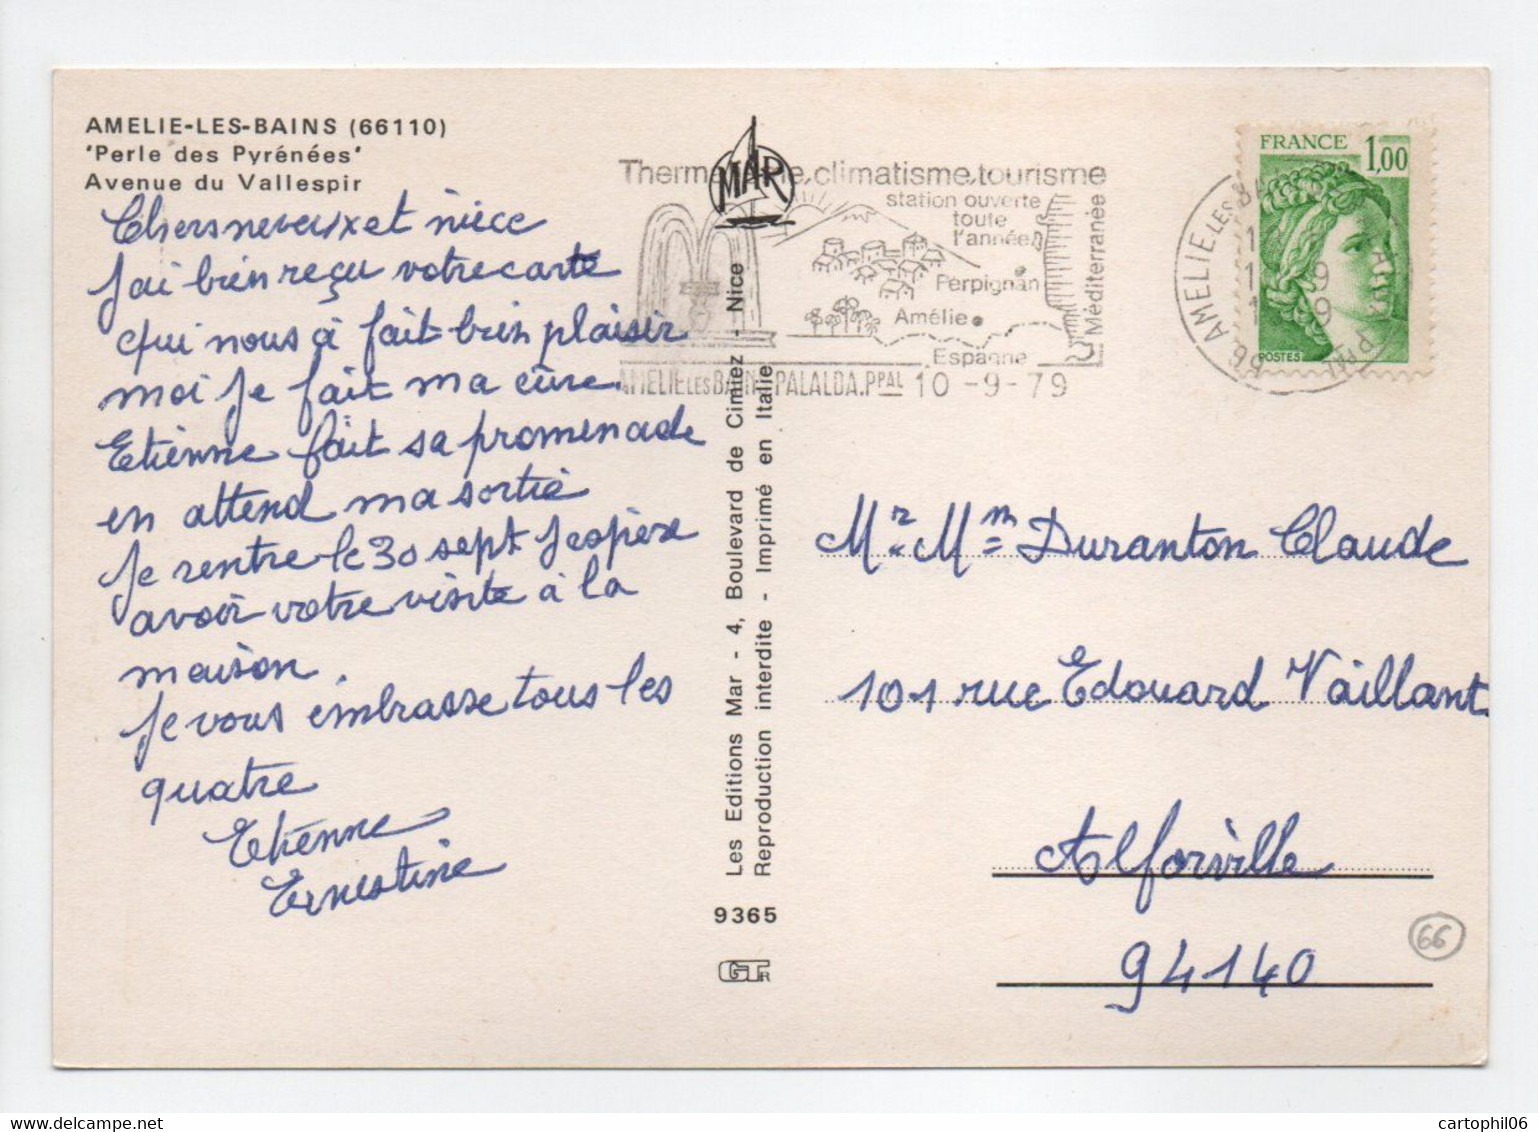 AMELIE-LES-BAINS (66110)
'Perle des Pyrénées'
Avenue du Vallespir
Chers neveux et nièce
J'ai bien reçu votre carte
qui nous à fait bien plaisir
moi je fait ma cûre.
Etienne fait sa promenade
en attend ma sortie
Je rentre le 30 sept J'espère
avoir votre visite à la
maison.
Je vous embrasse tous les
quatre
Etienne
Ernestine
MAR
Les Editions Mar - 4, Boulevard de Cimiez - Nice
Reproduction interdite - Imprimé en Italie
9365
GTR
climatisme, tourisme
station ouverte
toute
l'année
Perpignan
Amélie
Espagne
Méditerranée
AMELIE LES BAINS PALALDA.PPAL 10-9-79
FRANCE 1,00
POSTES
66 AMELIE LES BA
Mr. Mm Duranton Claude
101 rue Edouard Vaillant
Alforville
94140
66
cartophil06